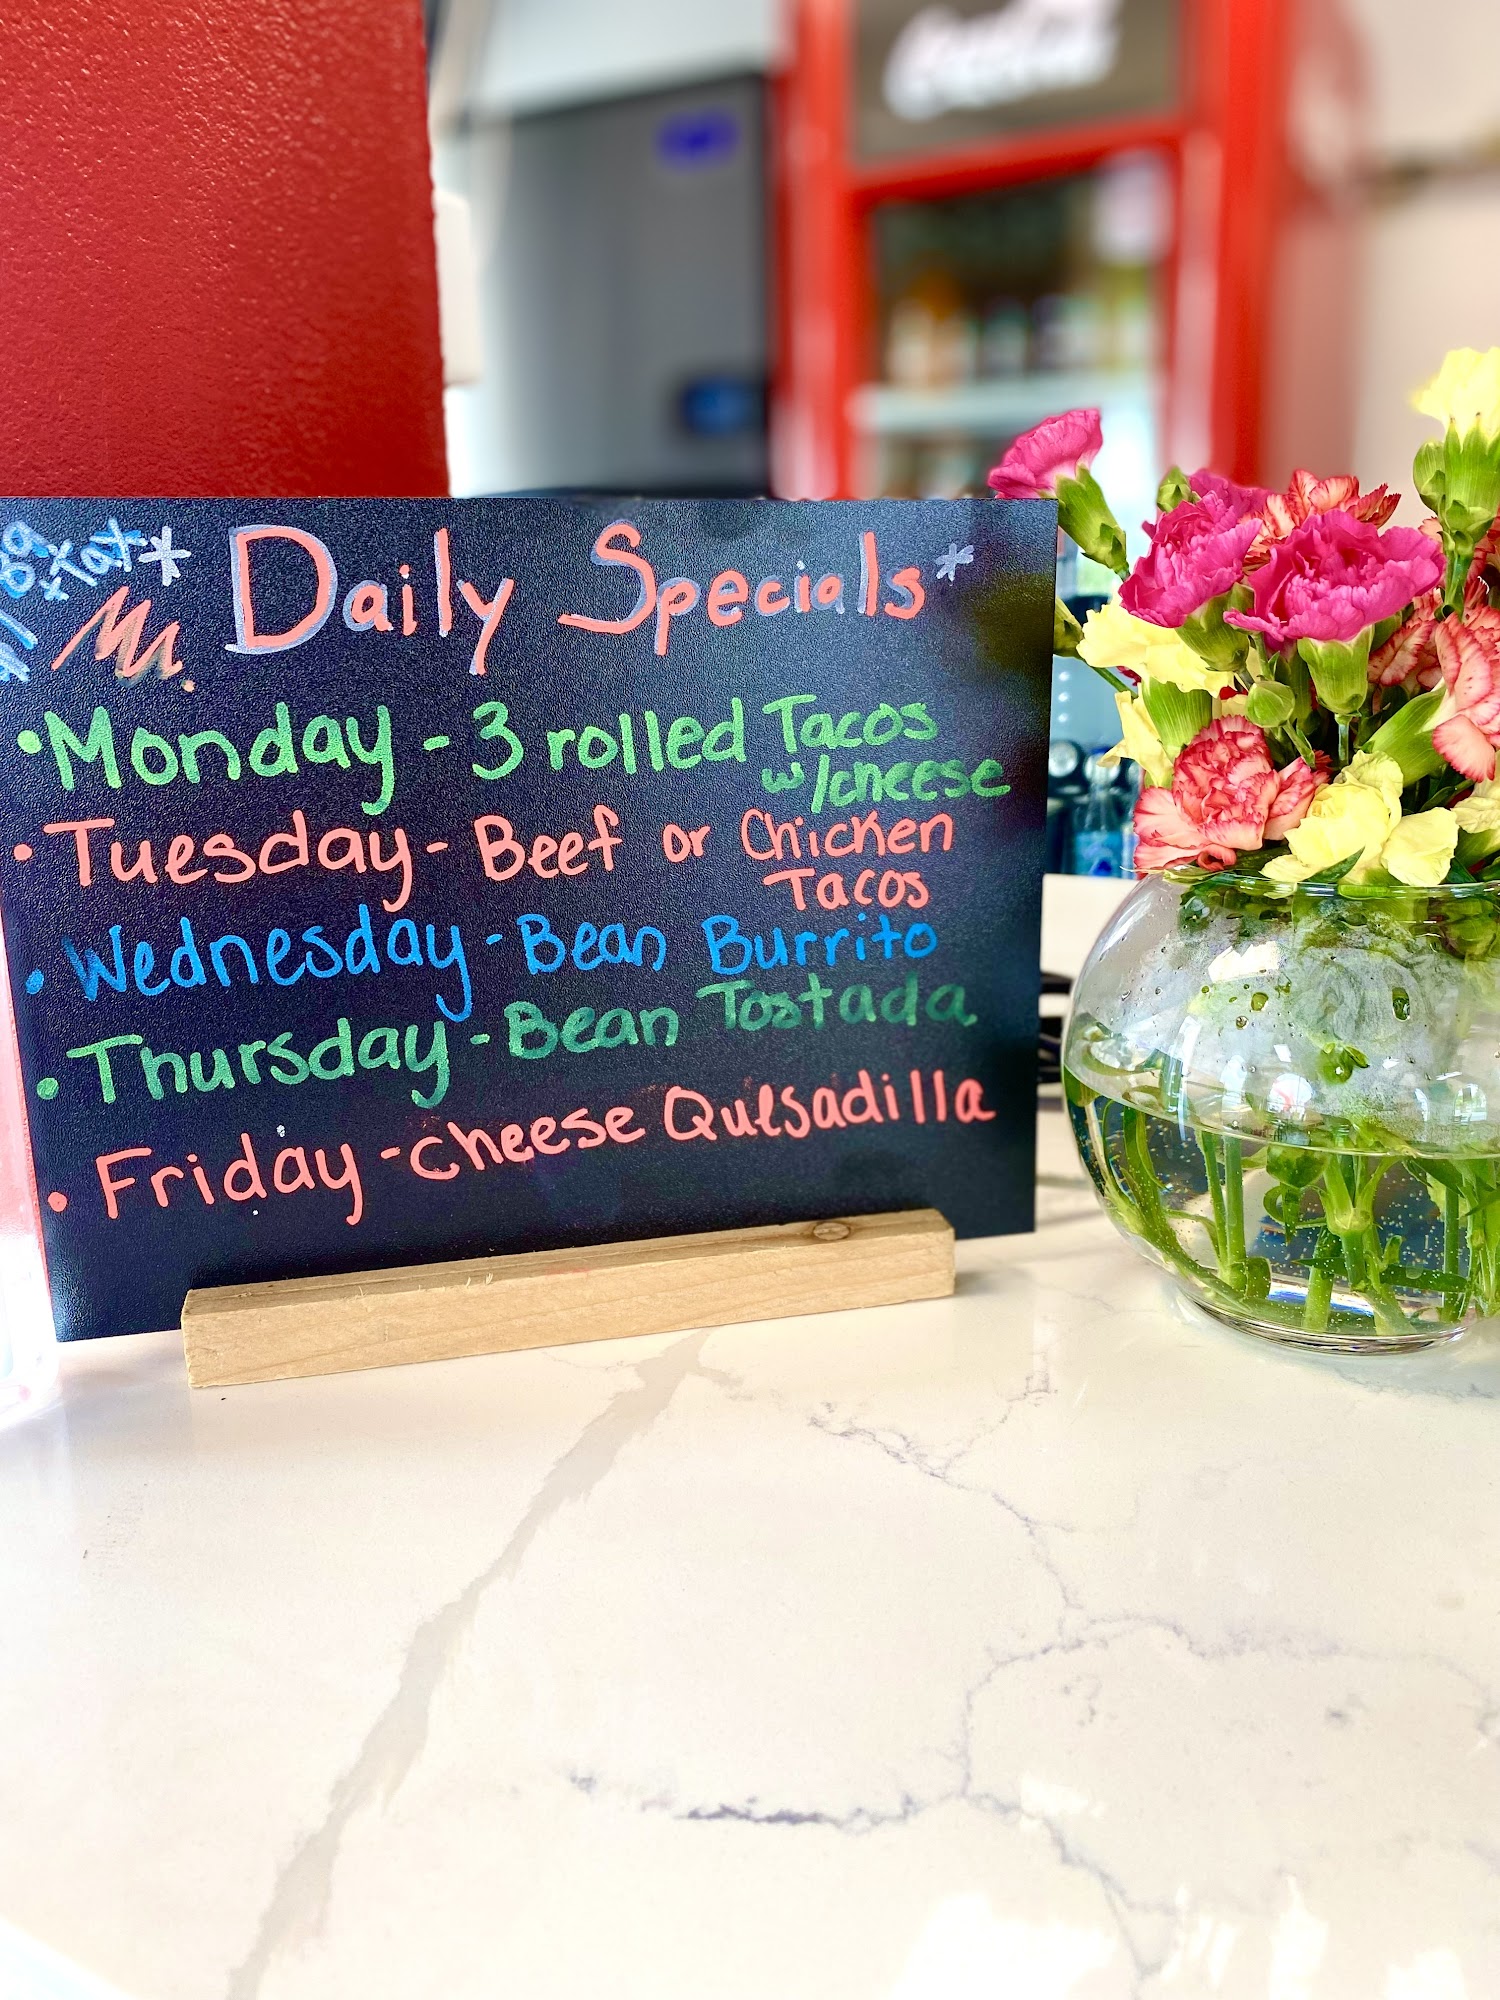 89
+Tax
* Daily Specials *
• Monday - 3 rolled Tacos
w/cheese
• Tuesday - Beef or Chicken
Tacos
• Wednesday - Bean Burrito
• Thursday - Bean Tostada
• Friday - cheese Quesadilla